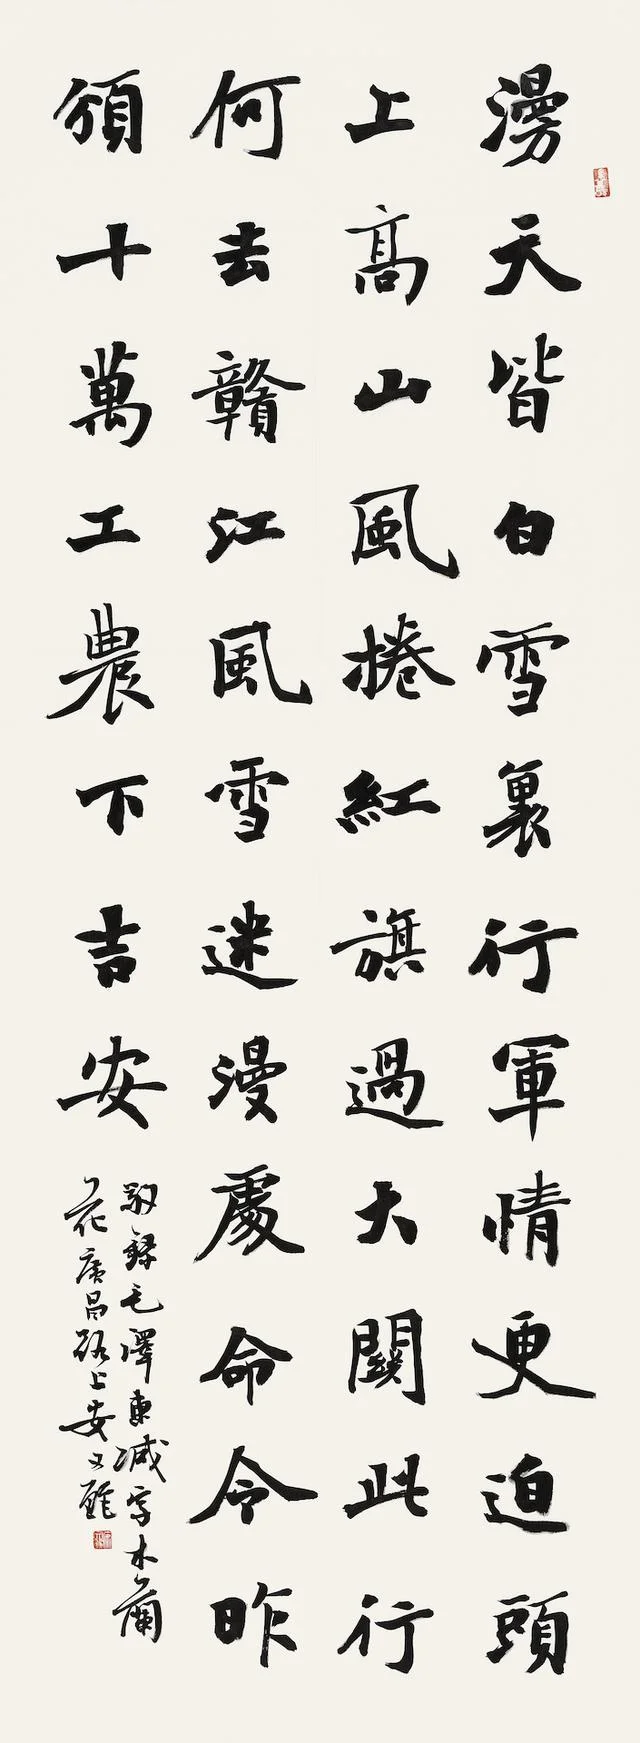 漫天皆白雪裏行軍情更迫頭
上高山風捲紅旗過大關此行
何去贛江風雪迷漫處命令昨
頒十萬工農下吉安
敬錄毛澤東減字木蘭
花廣昌路上安文